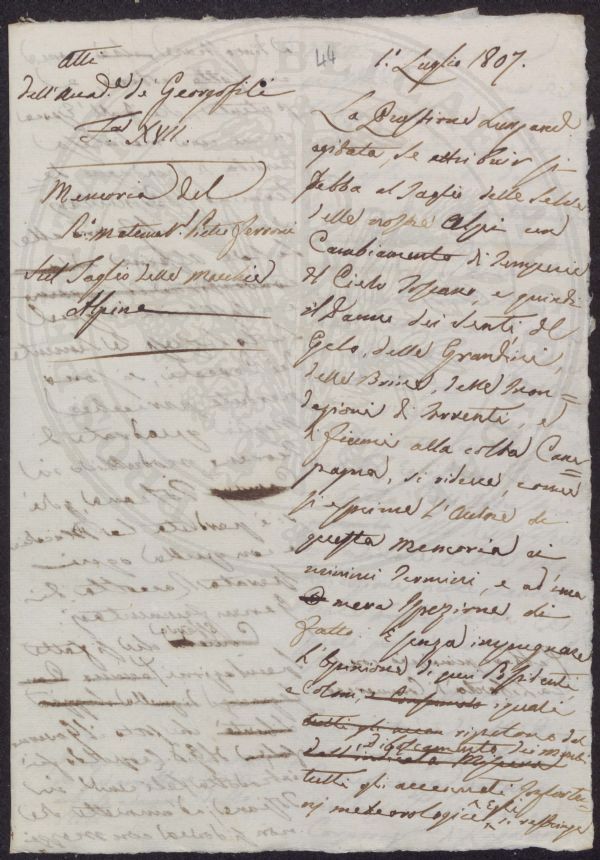 44
1.° Luglio 1807.
Atti
dell'Accad.ª de Georgofili
T. XVII.
Memoria del
R.° Matemat.° Pietro Ferroni
sul Taglio delle Macchie
Alpine
La Questione lungam.
agitata, se attribuir si
debba al Taglio delle Selve
delle nostre Alpi un
Cambiamento di Temperie
del Cielo Toscano, e quindi
il Danno dei Venti del
Gelo, delle Grandini,
delle Brine, delle Inon=
dazioni di Torrenti, e
di fiumi alla colta Cam=
pagna, si riduce, come
si esprime l'Autore di
questa Memoria ai
minimi Termini, e ad una
mera Ispezione di
fatto. Senza impugnare
l'Opinione di quei
e coloni, i quali
tutti gli
ripetono dal
Diboscamento dei monti
tutti gli accennati
meteorologici, Egli si restringe